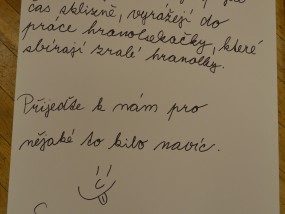 čas sklizně, vyrážejí do
práce hranolkačky, které
sbírají zralé hranolky.
Přijeďte k nám pro
nějaké to kilo navíc.